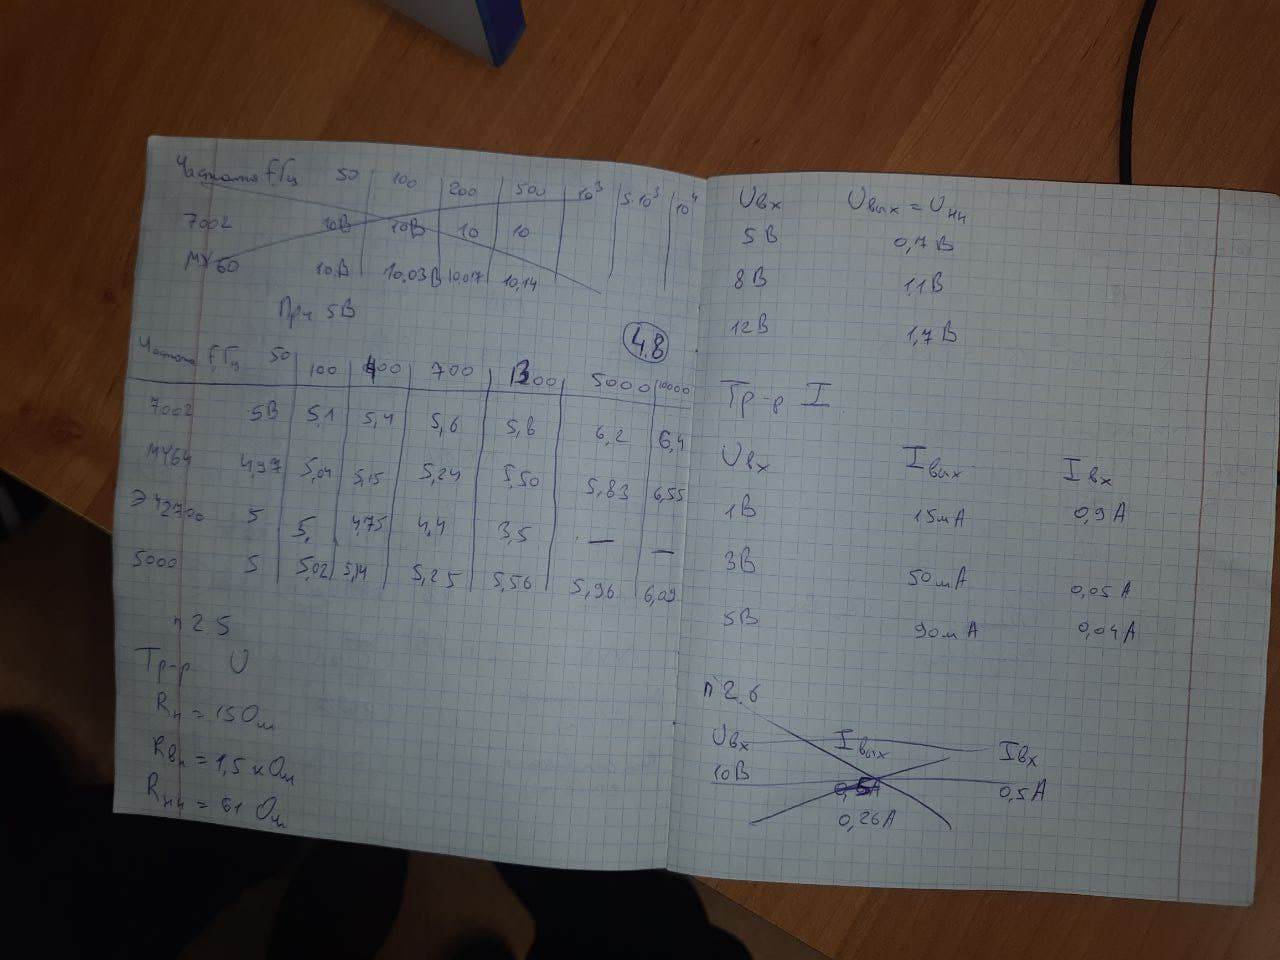 Частота f,Гц 50 100 200 500 10³ 5·10³ 10⁴
7002 10В 10В 10 10
МУ60 10В 10,03В 10,017 10,14
При 5В
4.8
Частота f,Гц 50 100 400 700 1300 5000 10000
7002 5В 5,1 5,4 5,6 5,8 6,2 6,4
МУ64 4,97 5,04 5,15 5,24 5,50 5,83 6,55
Э42700 5 5, 4,75 4,4 3,5 — —
5000 5 5,02 5,14 5,25 5,56 5,96 6,09
п 2 5
Тр-р U
Rн = 15 Ом
= 1,5 кОм
= 61 Ом
Uвх Uвых = Uнн
5В 0,7В
8В 1,1В
12В 1,7В
Тр-р I
Uвх Iвых Iвх
1В 15мА 0,9А
3В 50мА 0,05А
5В 90мА 0,04А
п 2.6
Uвх Iвых Iвх
10В 0,5А 0,5А
0,26А